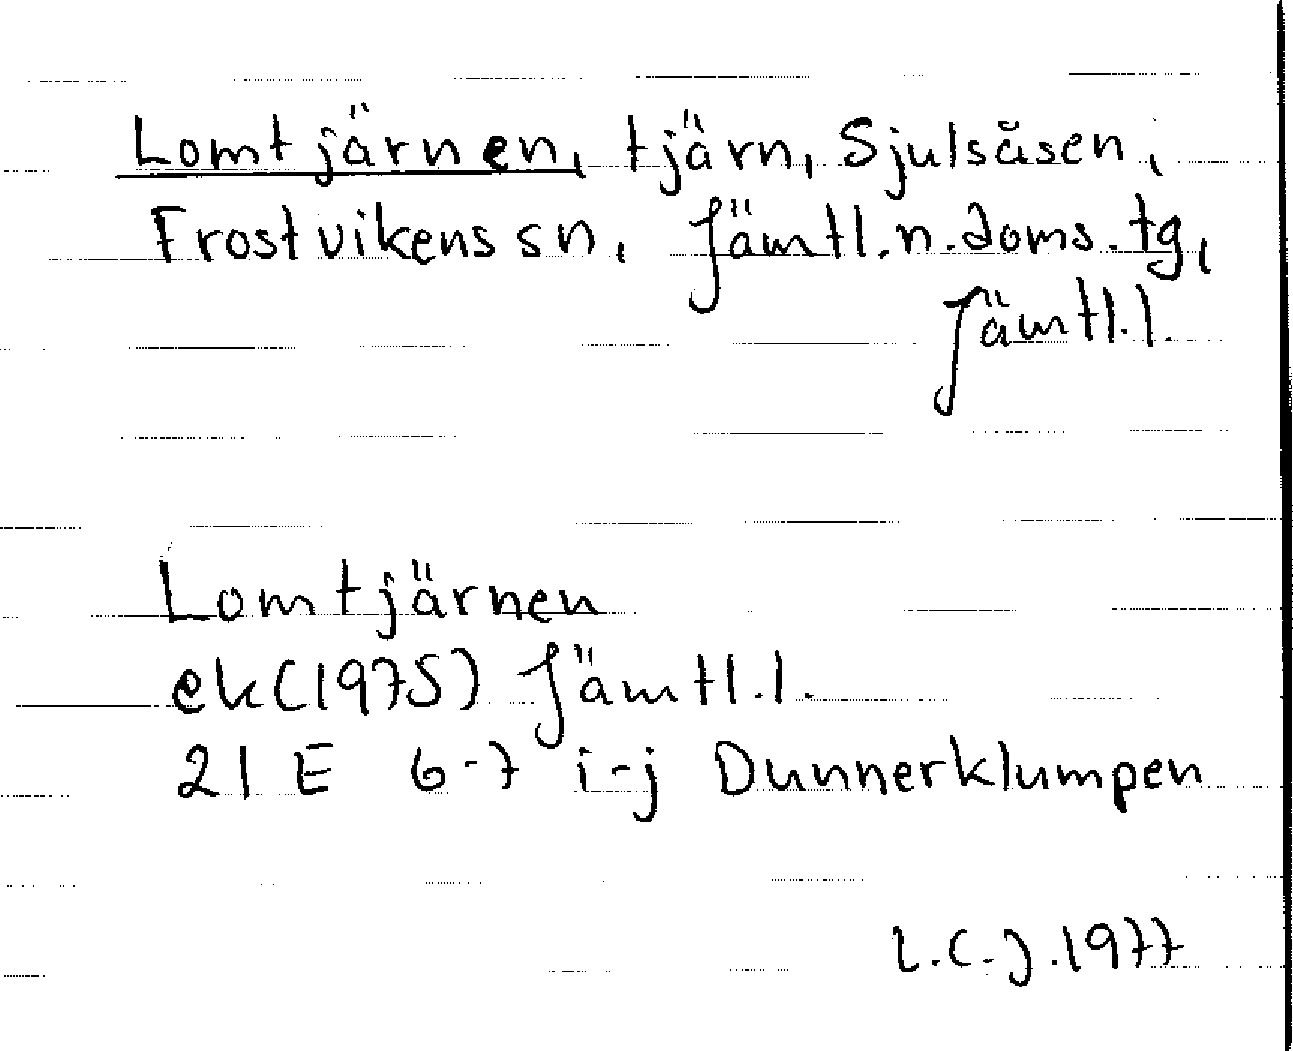 Lomtjärnen, tjärn, Sjulsåsen,
Frostvikens sn, Jämtl.n.doms.tg,
Jämtl.l.
Lomtjärnen
ek(1975) Jämtl.l.
21 E 6-7 i-j Dunnerklumpen
L.C.J.1977